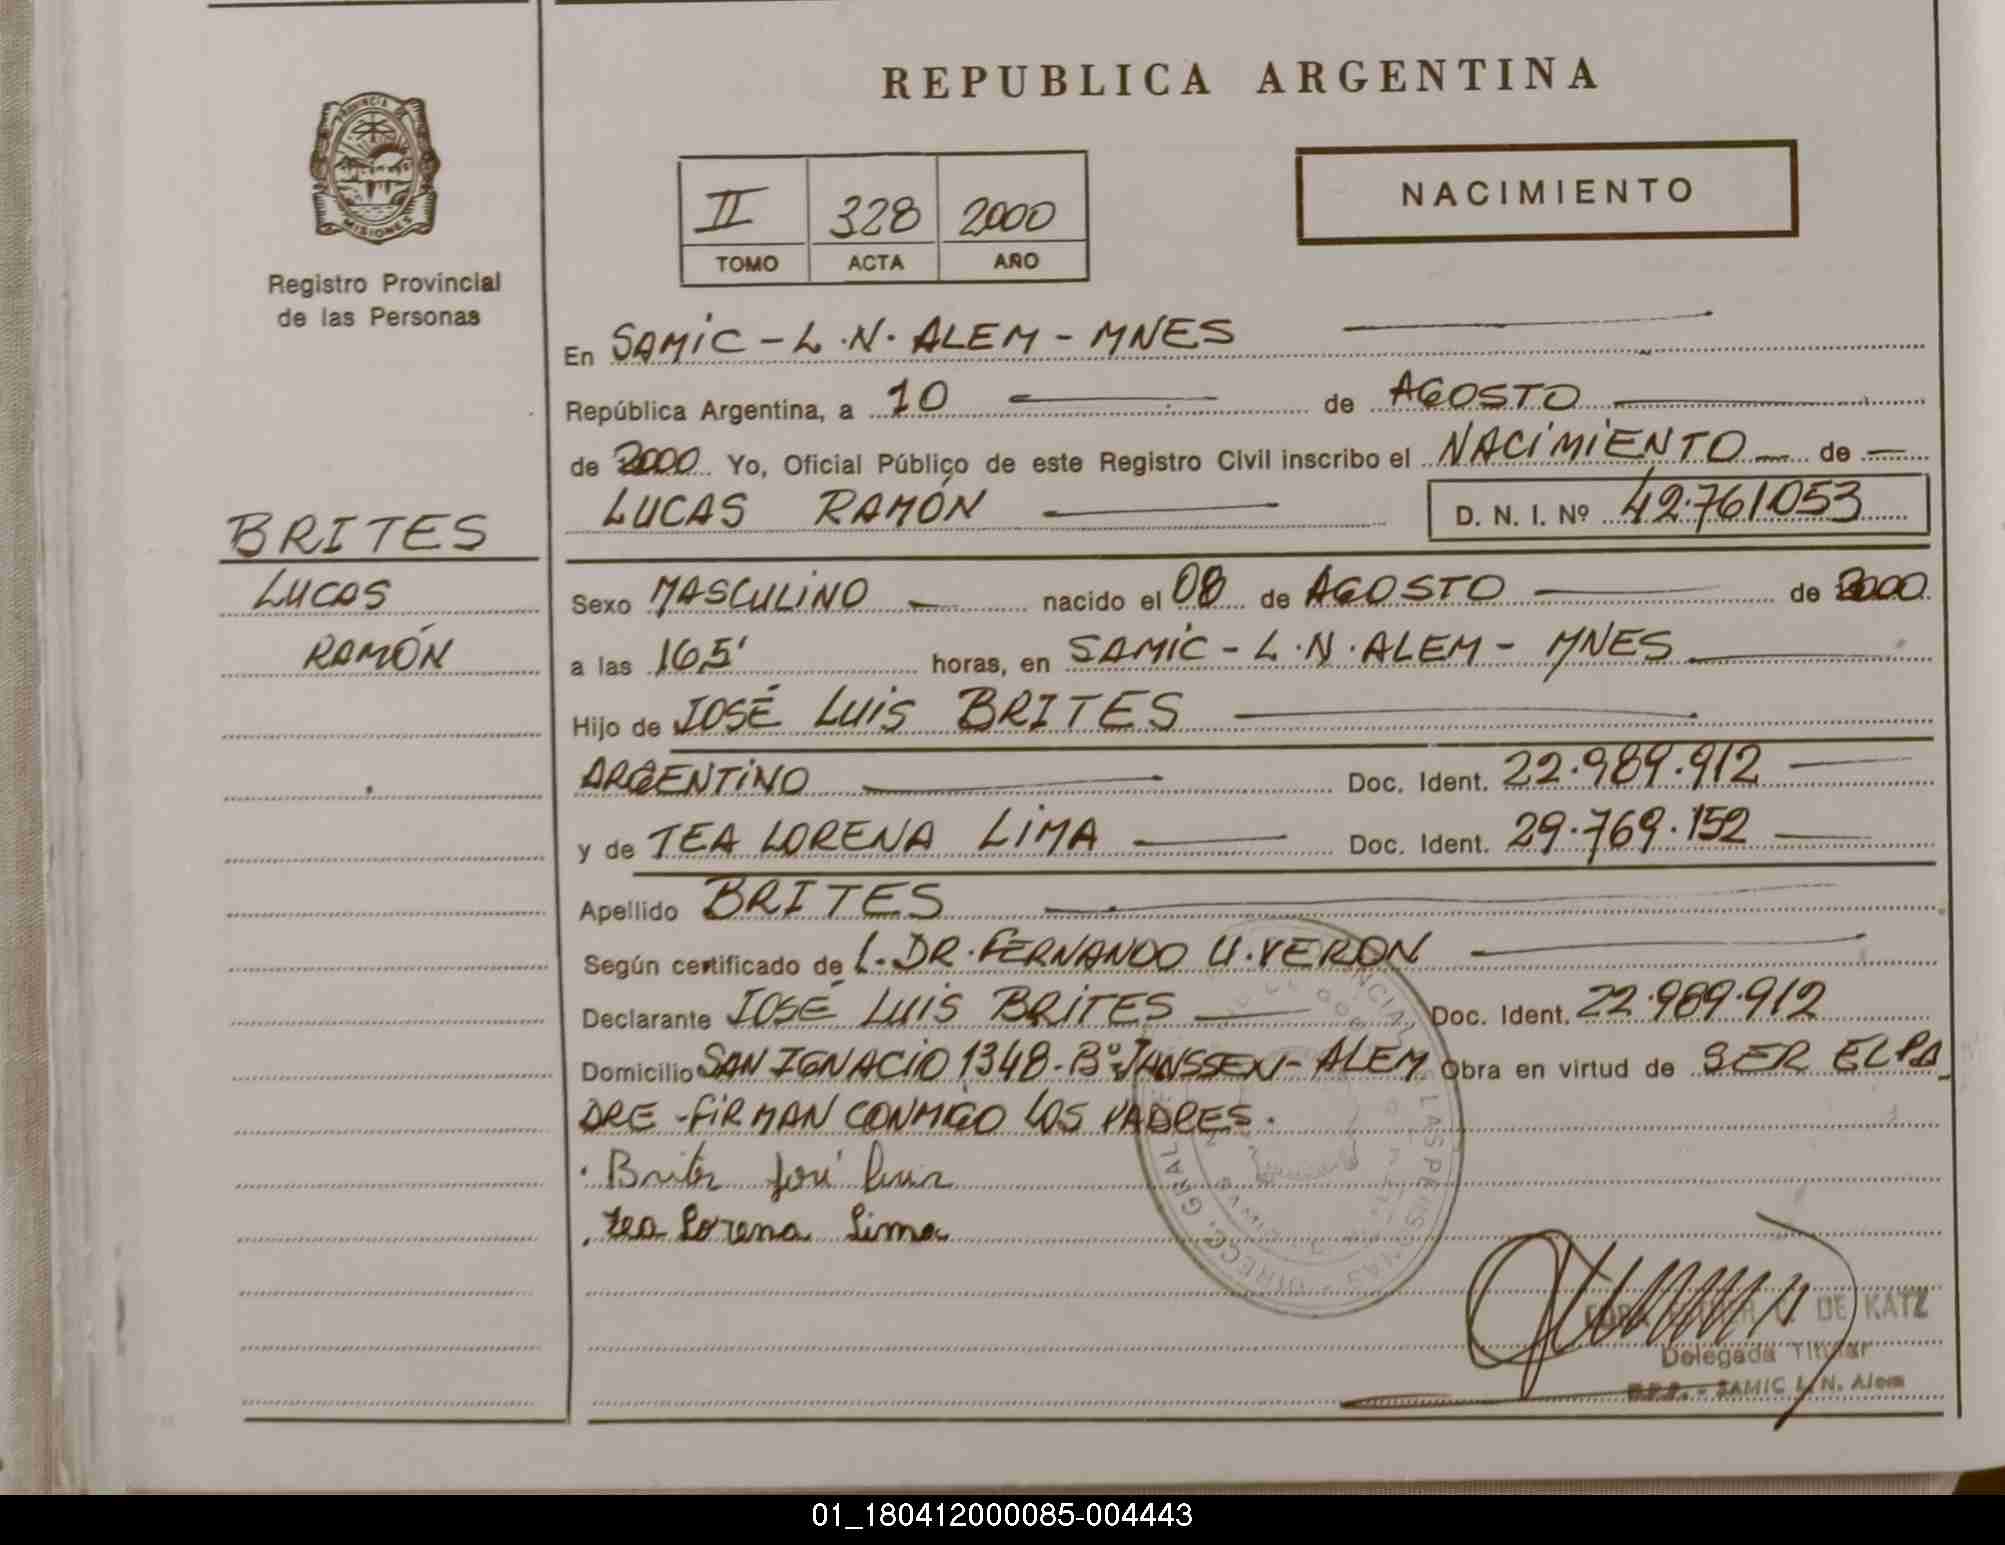 REPUBLICA ARGENTINA
PROVINCIA
MISIONES
Registro Provincial
de las Personas
II 328 2000
TOMO ACTA AÑO
NACIMIENTO
En SAMIC - L.N. ALEM - MNES
República Argentina, a 10 de AGOSTO
de 2000 Yo, Oficial Público de este Registro Civil inscribo el NACIMIENTO de
LUCAS RAMÓN D. N. I. Nº 42.761.053
BRITES
LUCAS
RAMÓN
Sexo MASCULINO nacido el 08 de AGOSTO de 2000
a las 16,5' horas, en SAMIC - L.N. ALEM - MNES
Hijo de JOSÉ LUIS BRITES
ARGENTINO Doc. Ident. 22.989.912
y de TEA LORENA LIMA Doc. Ident. 29.769.152
Apellido BRITES
Según certificado de L. DR. FERNANDO U. VERON
Declarante JOSÉ LUIS BRITES Doc. Ident. 22.989.912
Domicilio SAN IGNACIO 1348 - Bº JANSSEN - ALEM Obra en virtud de SER EL PA
DRE - FIRMAN CONMIGO LOS PADRES.
Brites José Luis
Tea Lorena Lima
DE KATZ
Delegada Titular
SAMIC L. N. Alem
01_180412000085-004443